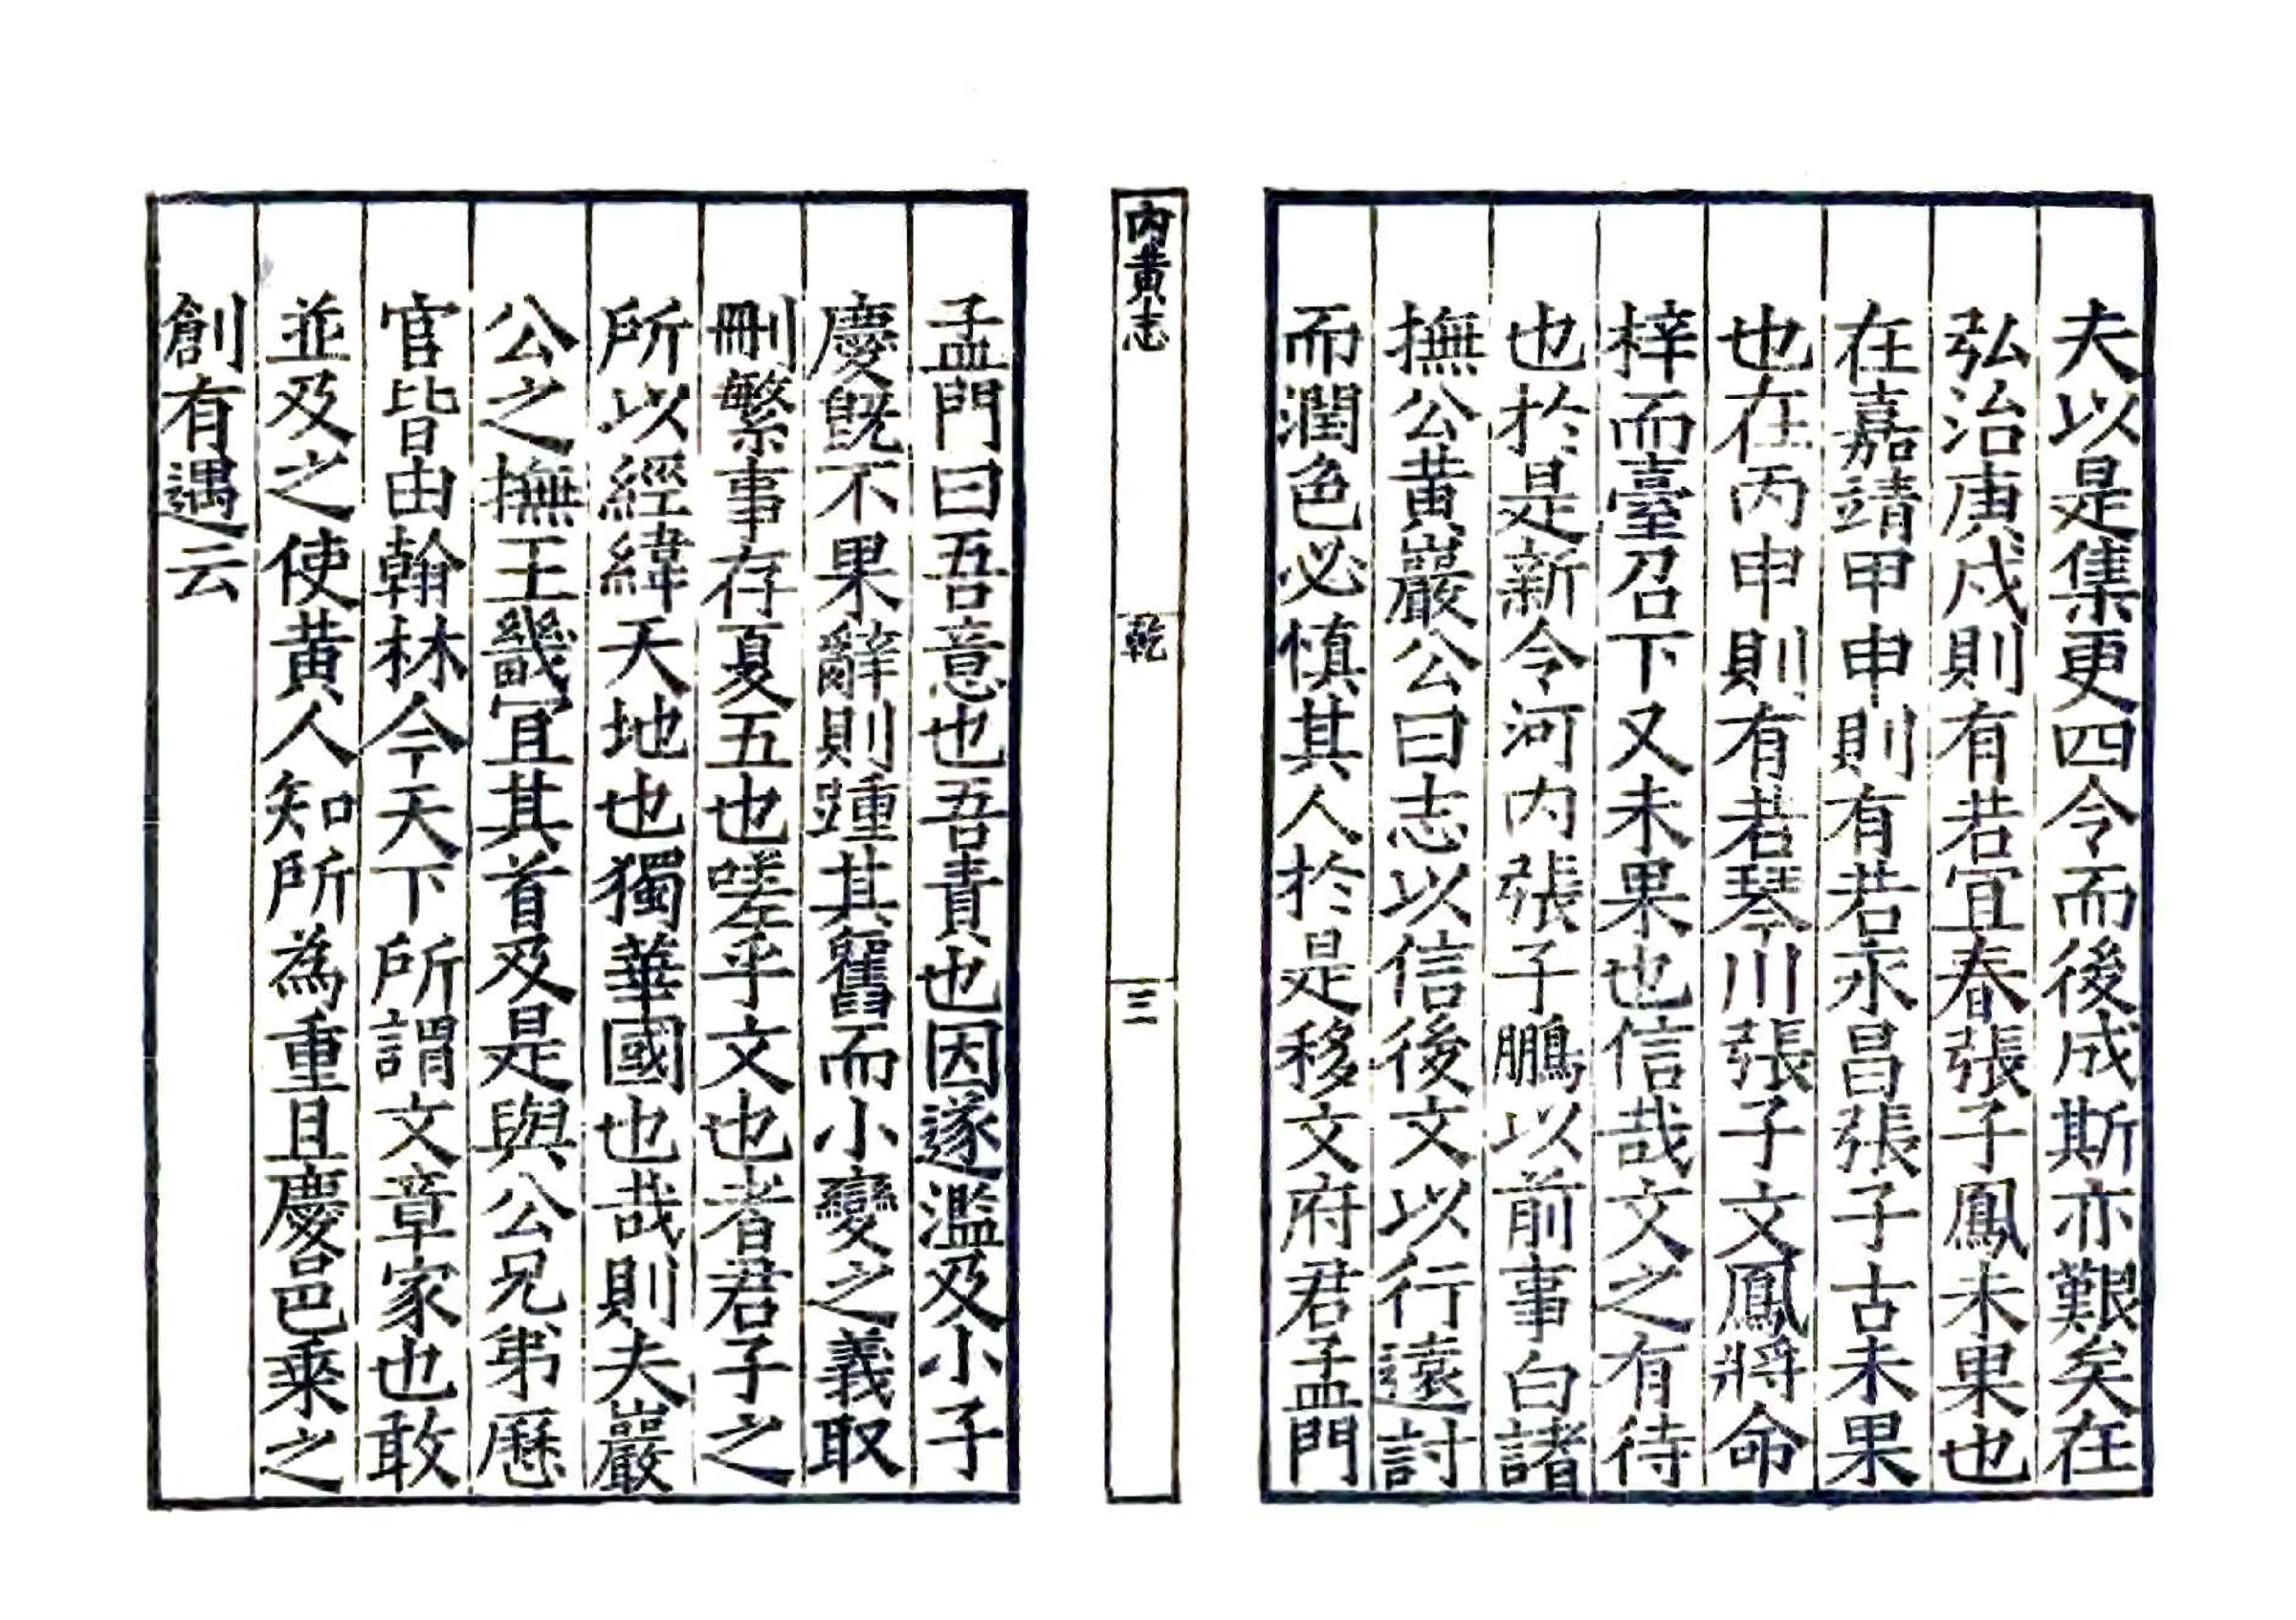 夫以是集更四令而後成斯亦艱矣在
弘治庚戍則有若宜春張子鳳未果也
在嘉靖甲申則有若永昌張子古未果
也在丙申則有若琴川張子文鳳將命
梓而臺召下又未果也信哉文之有待
也於是新令河内張子鵬以前事白諸
撫公黄巖公曰志以信後文以行遠討
而潤色必慎其人於是移文府君孟門
内黄志
乾
三
孟門曰吾意也吾責也因遂濫及小子
慶既不果辭則踵其舊而小變之義取
刪繁事存夏五也嗟乎文也者君子之
所以經緯天地也獨華國也哉則夫巖
公之撫王畿冝其首及是與公兄弟歷
官皆由翰林今天下所謂文章家也敢
並及之使黄人知所為重且慶邑乘之
創有遇云